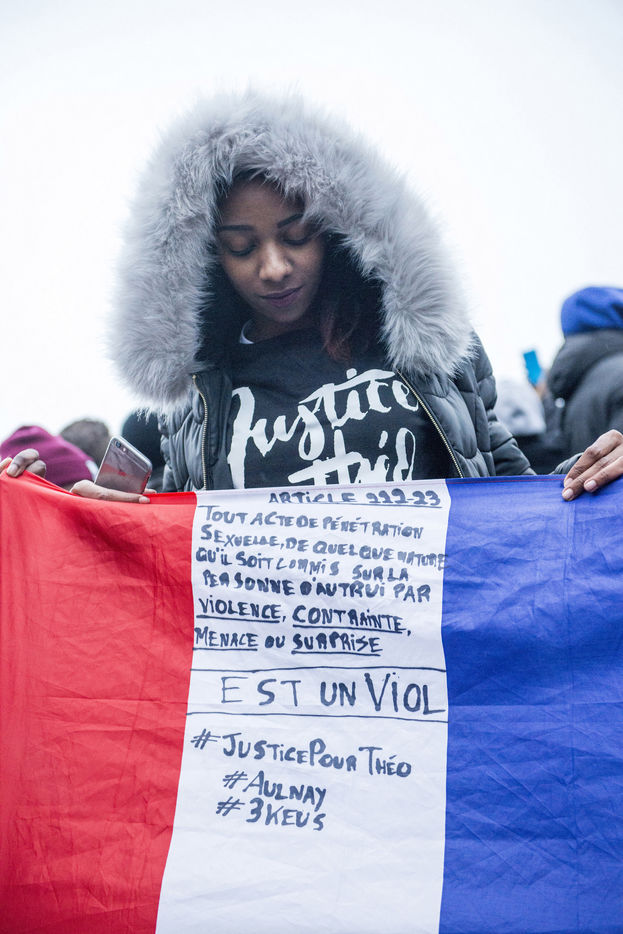 Justice
ARTICLE 222-23
TOUT ACTE DE PÉNÉTRATION
SEXUELLE, DE QUELQUE NATURE
QU'IL SOIT COMMIS SUR LA
PERSONNE D'AUTRUI PAR
VIOLENCE, CONTRAINTE,
MENACE OU SURPRISE
EST UN VIOL
#JUSTICEPOUR THÉO
#AULNAY
#3KEUS